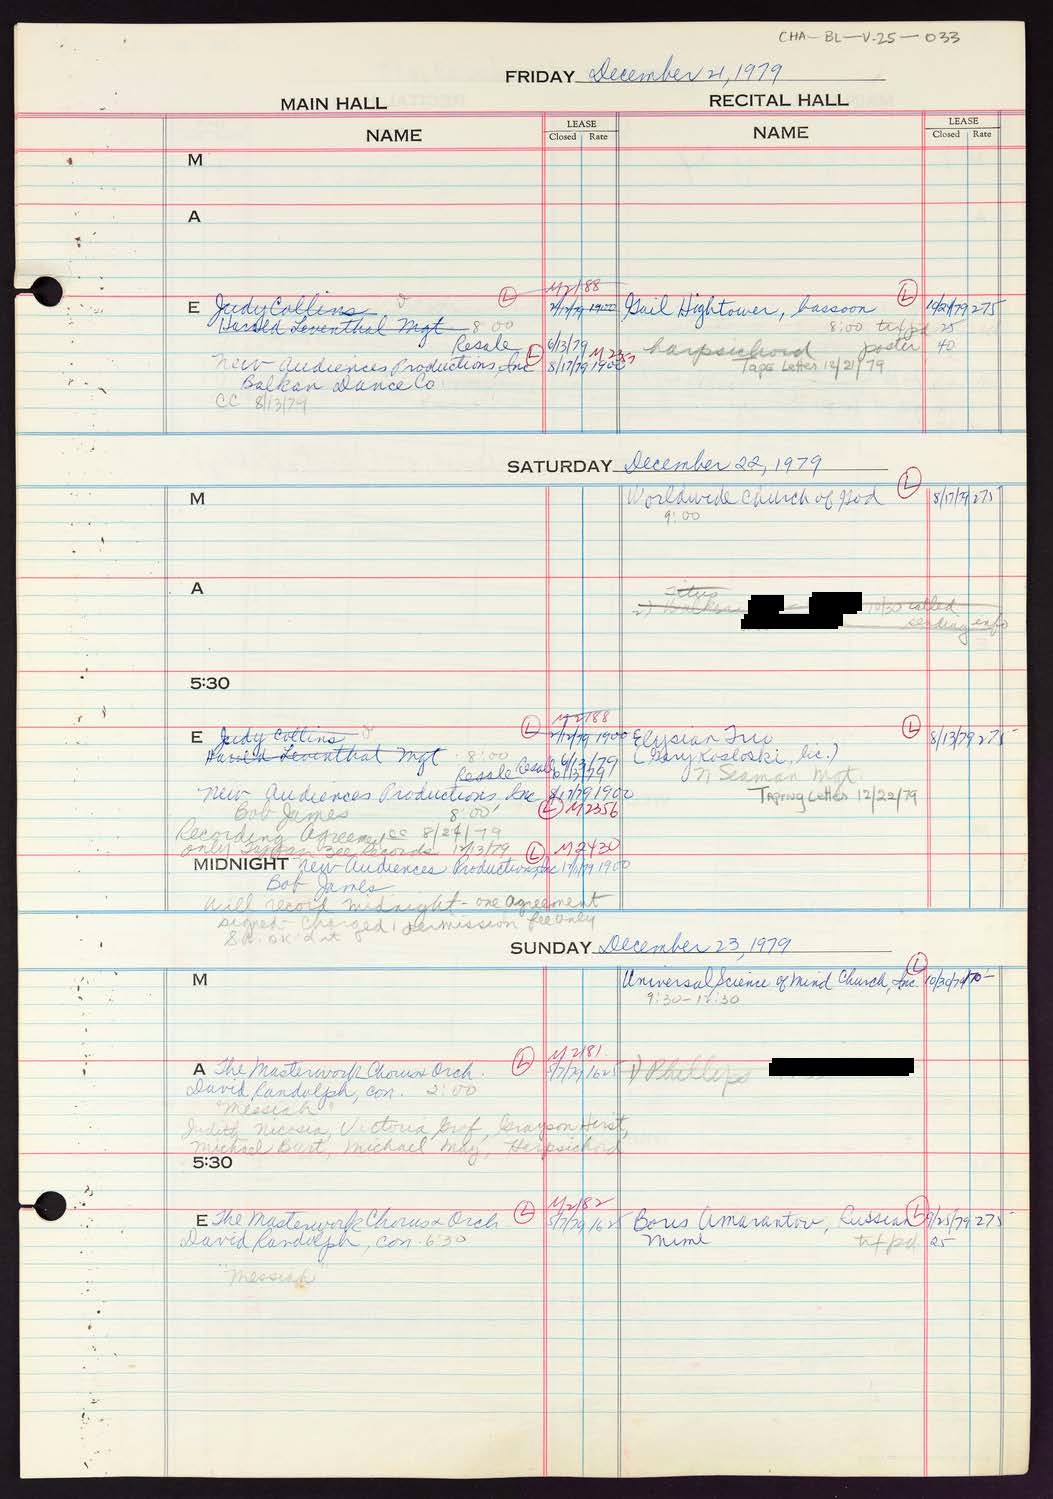 CHA-BL-V-25-033
FRIDAY December 21, 1979
MAIN HALL
RECITAL HALL
NAME
LEASE
Closed Rate
NAME
LEASE
Closed Rate
M
A
M2188
E Judy Collins
L
2/12/79 1900
Gail Hightower, bassoon
L
10/29/79 275
Harold Leventhal Mgt 8:00
8:00 tkt pd 25
Resale
6/13/79
harpsichord
poster 40
New Audiences Productions, Inc
L
8/17/79 1900
M 2357
Tape Letter 12/21/79
Balkan Dance Co
CC 8/13/79
SATURDAY December 22, 1979
M
Worldwide Church of God
L
8/17/79 275
9:00
A
10/30 called
sending info
5:30
M2188
E Judy Collins
L
2/12/79 1900
Elysian Trio
L
8/13/79 275
Harold Leventhal Mgt 8:00
6/13/79
(Gary Kosloski, lic.)
Resale Resale 6/13/79
N Seaman Mgt.
New Audiences Productions, Inc
8/17/79 1900
Taping Letter 12/22/79
Bob James 8:00
L
M2356
Recording Agreement CC 8/24/79
only Tappan Zee Records 12/13/79
L
M2430
MIDNIGHT New Audiences Productions, Inc 1900
Bob James
Will record midnight - one agreement
signed - Charged 1 permission fee only
SUNDAY December 23, 1979
M
Universal Science of Mind Church, Inc.
L
10/30/79 170-
9:30-12:30
M2181
A The Masterwork Chorus & Orch.
L
5/7/79 1625
1) Phillips
David Randolph, con. 2:00
"Messiah"
Judith Nicosia, Victoria Grof, Grayson Hirst,
Michael Burt, Michael May, Harpsichord
5:30
M2182
E The Masterwork Chorus & Orch.
L
5/7/79 1625
Boris Amarantov, Russian
L
9/25/79 275
David Randolph, con. 6:30
Mime
tkt pd. 25
"Messiah"